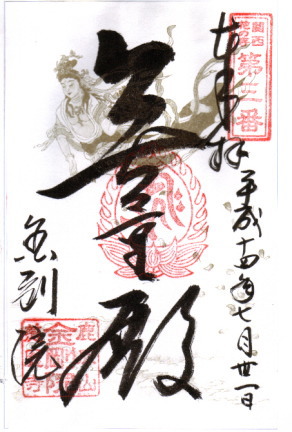 関西花の寺
第三番
奉拝
平成十四年七月卅一日
無量殿
金剛院
鹿原山
金剛院